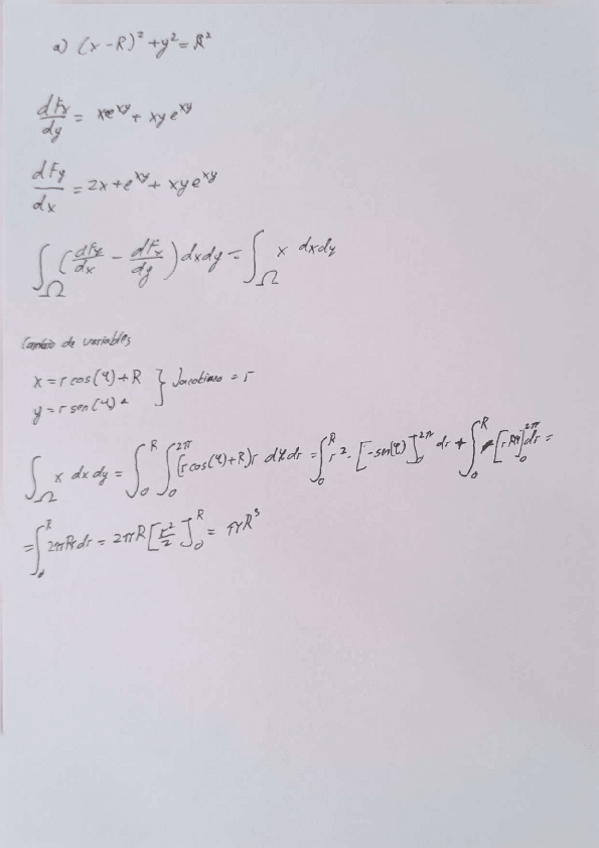 a) (x-R)² + y² = R²
dFx/dy = xe^xy + xye^xy
dFy/dx = 2x + e^xy + xye^xy
∫_Ω (dFy/dx - dFx/dy) dxdy = ∫_Ω x dxdy
Cambio de variables
x = r cos(φ) + R } Jacobiano = r
y = r sen(φ)
∫_Ω x dx dy = ∫_0^R ∫_0^2π (r cos(φ) + R) r dφ dr = ∫_0^R r² · [-sen(φ)]_0^2π dr + ∫_0^R [r Rφ]_0^2π dr =
= ∫_0^R 2πRr dr = 2πR [r²/2]_0^R = πR³